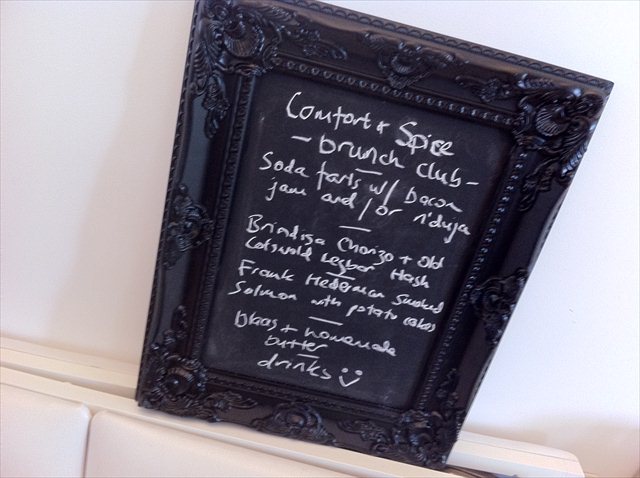 Comfort & Spice
- brunch club -
Soda farls w/ bacon
jam and/or n'duja
Brindisa Chorizo + Old
Cotswold Legbar Hash
Frank Hederman Smoked
Salmon with potato cakes
Blaas + homemade
butter
drinks